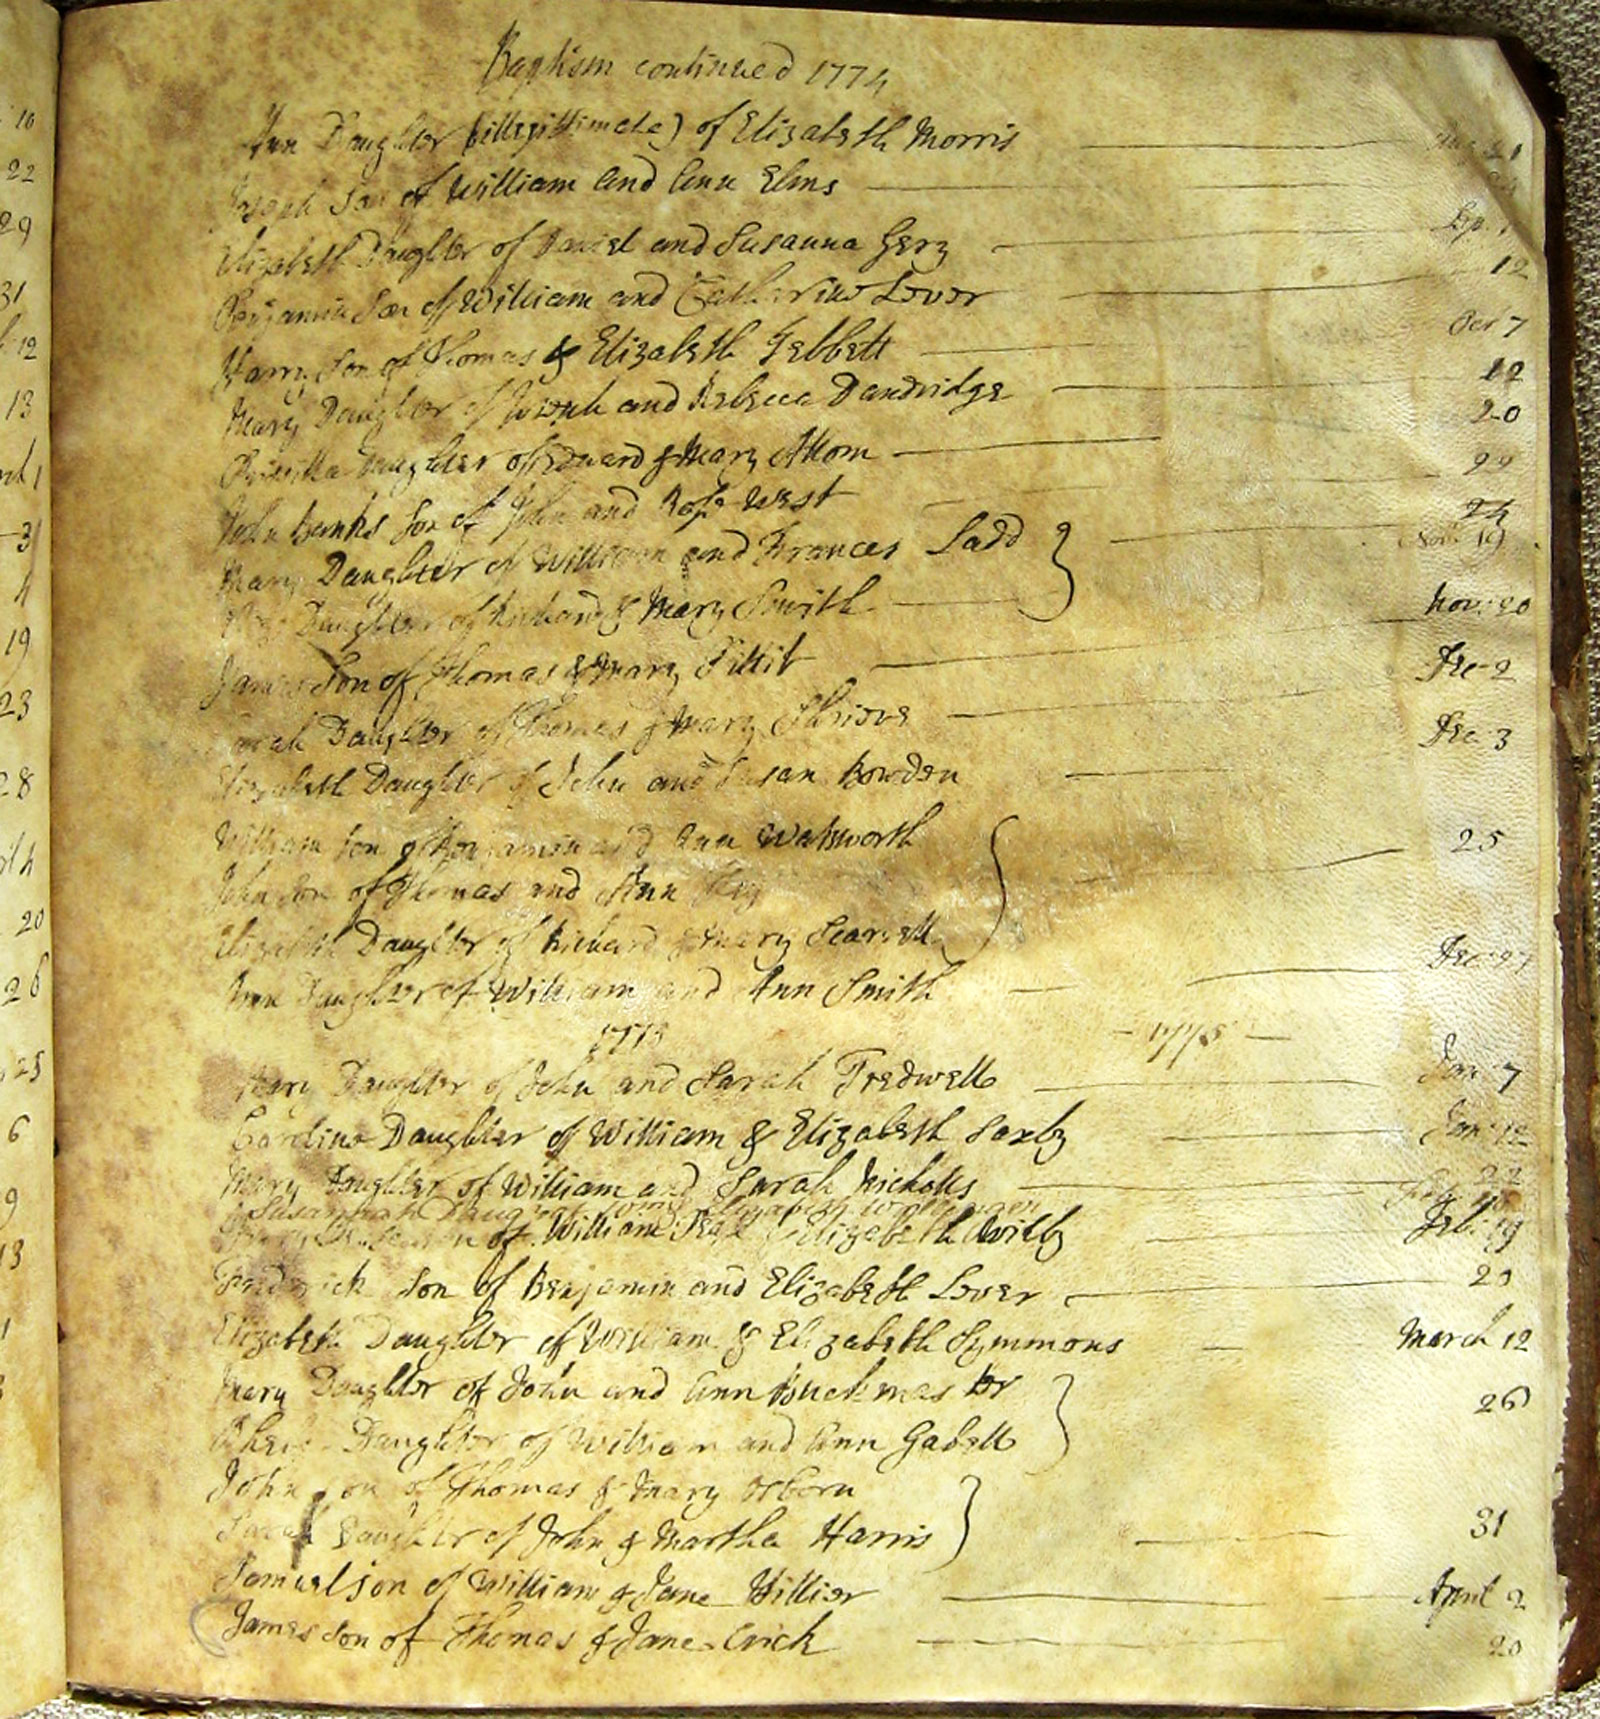 10
22
29
31
12
13
1
3
4
19
23
28
4
20
26
25
6
9
13
1
Baptism continued 1774
Ann Daughter (illegittimate) of Elizabeth Morris 21
Joseph Son of William and Ann Elms
Elizabeth Daughter of Daniel and Susanna Gery Sep.
Benjamin Son of William and Catharine Lover 12
Harry Son of Thomas & Elizabeth Tebbett Oct 7
Mary Daughter of Joseph and Rebecca Dandridge 12
Priscilla Daughter of Edward & Mary Attom 20
John Banks Son of John and Rose West
Mary Daughter of William and Frances Ladd 24
Daughter of Richard & Mary Smith Nov. 19
James Son of Thomas & Mary Tittit Nov: 20
Sarah Daughter of Thomas & Mary Shrieve Dec 2
Elizabeth Daughter of John and Susan Bowden Dec 3
William Son of Benjamin and Ann Walsworth
John Son of Thomas and Ann 25
Elizabeth Daughter of Richard & Mary Scarsett
Ann Daughter of William and Ann Smith Dec: 27
1775 - 1775 -
Mary Daughter of John and Sarah Tredwell Jan: 7
Caroline Daughter of William & Elizabeth Saxby Jan: 12
Mary Daughter of William and Sarah Nicholls 22
Susannah Daughter Elizabeth Feb
of William & Elizabeth Wilby Feb: 19
Frederick Son of Benjamin and Elizabeth Lover 20
Elizabeth Daughter of William & Elizabeth Symmons March 12
Mary Daughter of John and Ann Buckmaster 26
Daughter of William and Ann Gabell
John Son of Thomas & Mary Osborn
Sarah Daughter of John & Martha Harris 31
Samuel son of William & Jane Hillier April 2
James Son of Thomas & Jane Crick 20